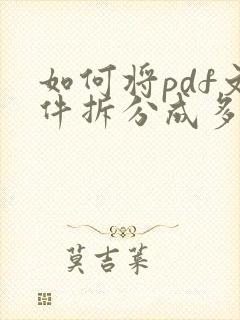 如何将pdf文
件拆分成多
莫吉某